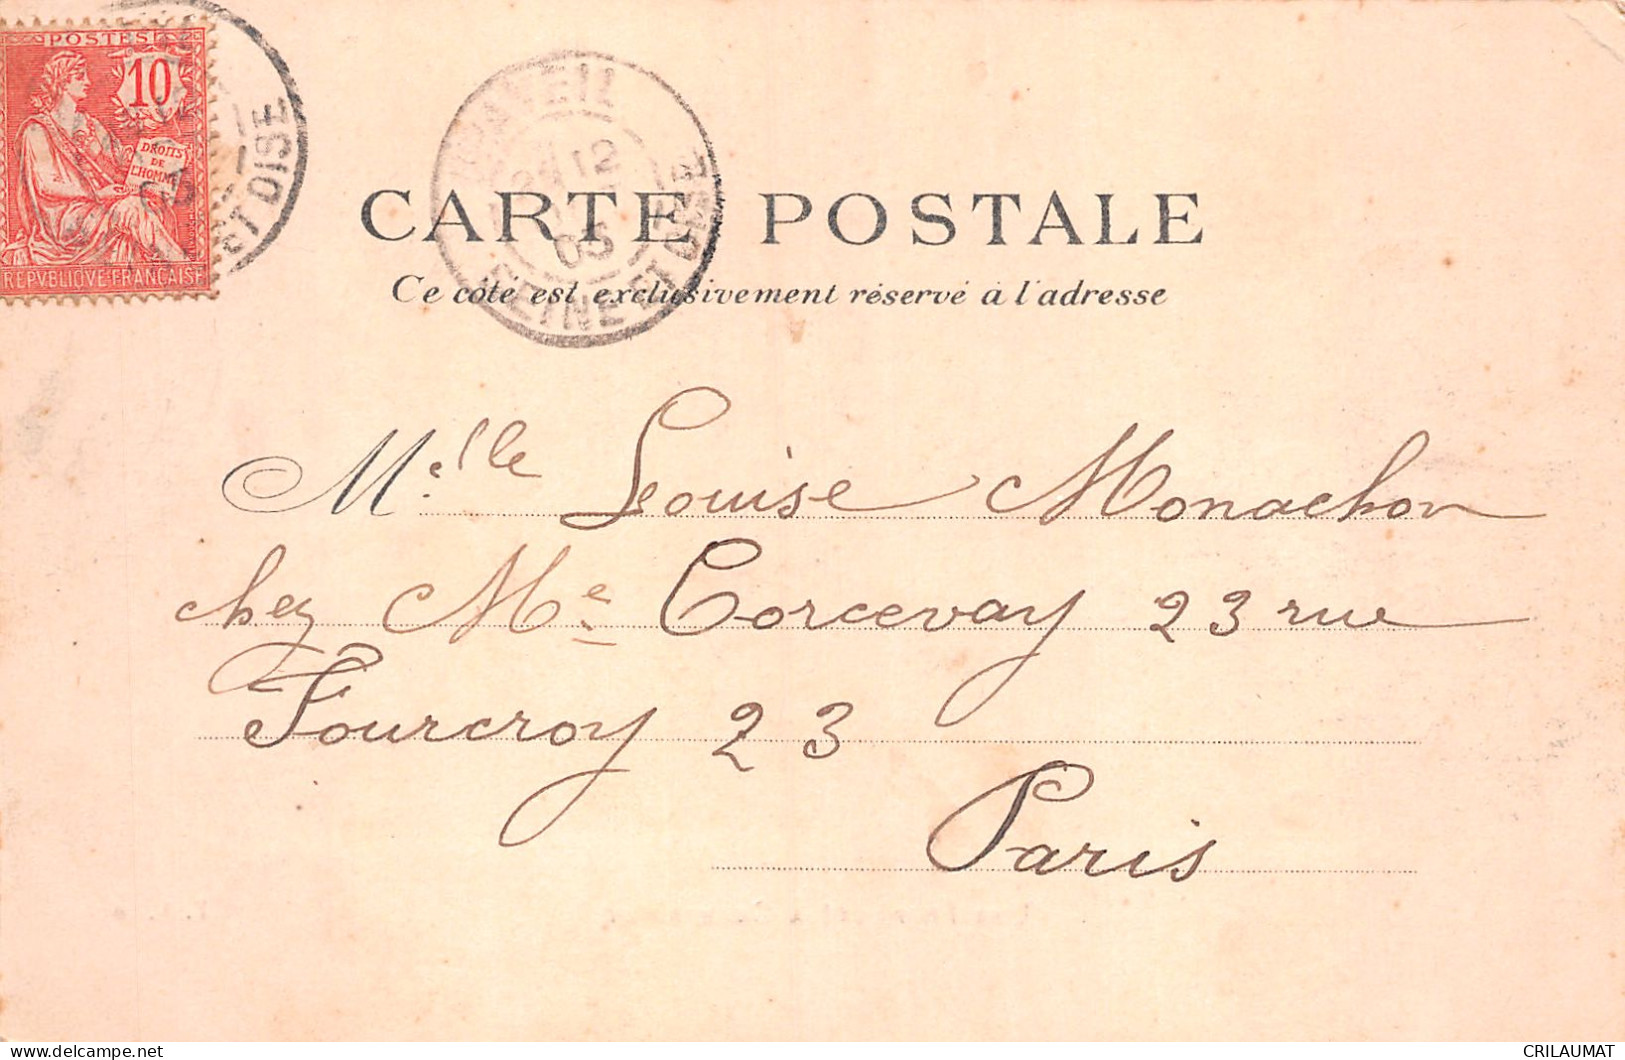 POSTES
10
DROITS
DE
L'HOMME
REPVBLIQVE FRANÇAISE
ET OISE
12
03
SEINE ET OISE
CARTE POSTALE
Ce côté est exclusivement réservé à l'adresse
M.lle Louise Monachon
chez Me Corcevay 23 rue
Fourcroy 23
Paris
CRILAUMAT